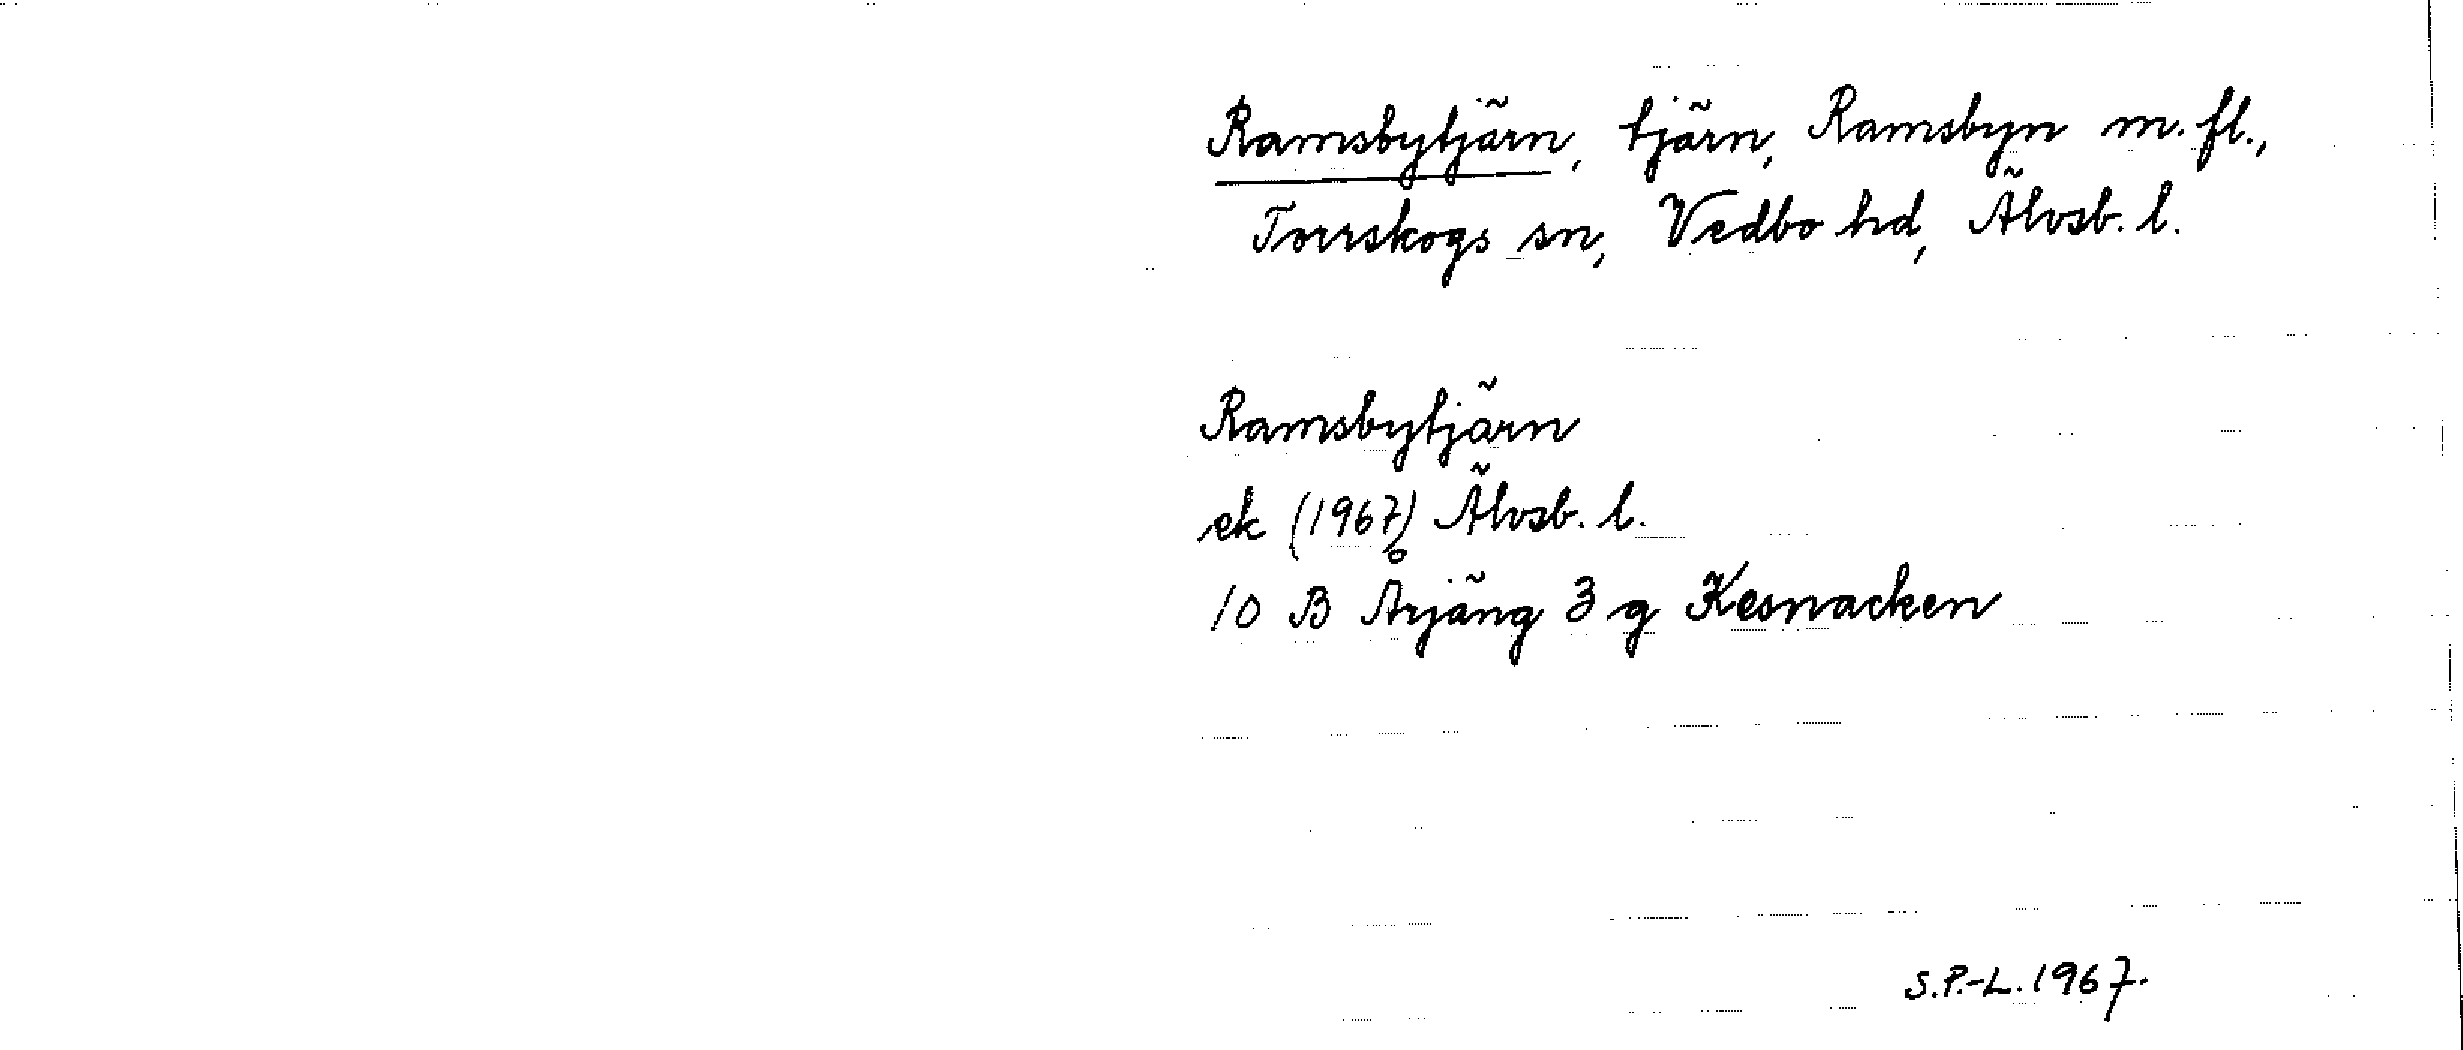 Ramsbytjärn, tjärn, Ramsbyn m.fl.,
Torrskogs sn, Vedbo hd, Älvsb. l.
Ramsbytjärn
ek (1967) Älvsb. l.
10 B Årjäng 3 g Kesnacken
S.P.-L. 1967.